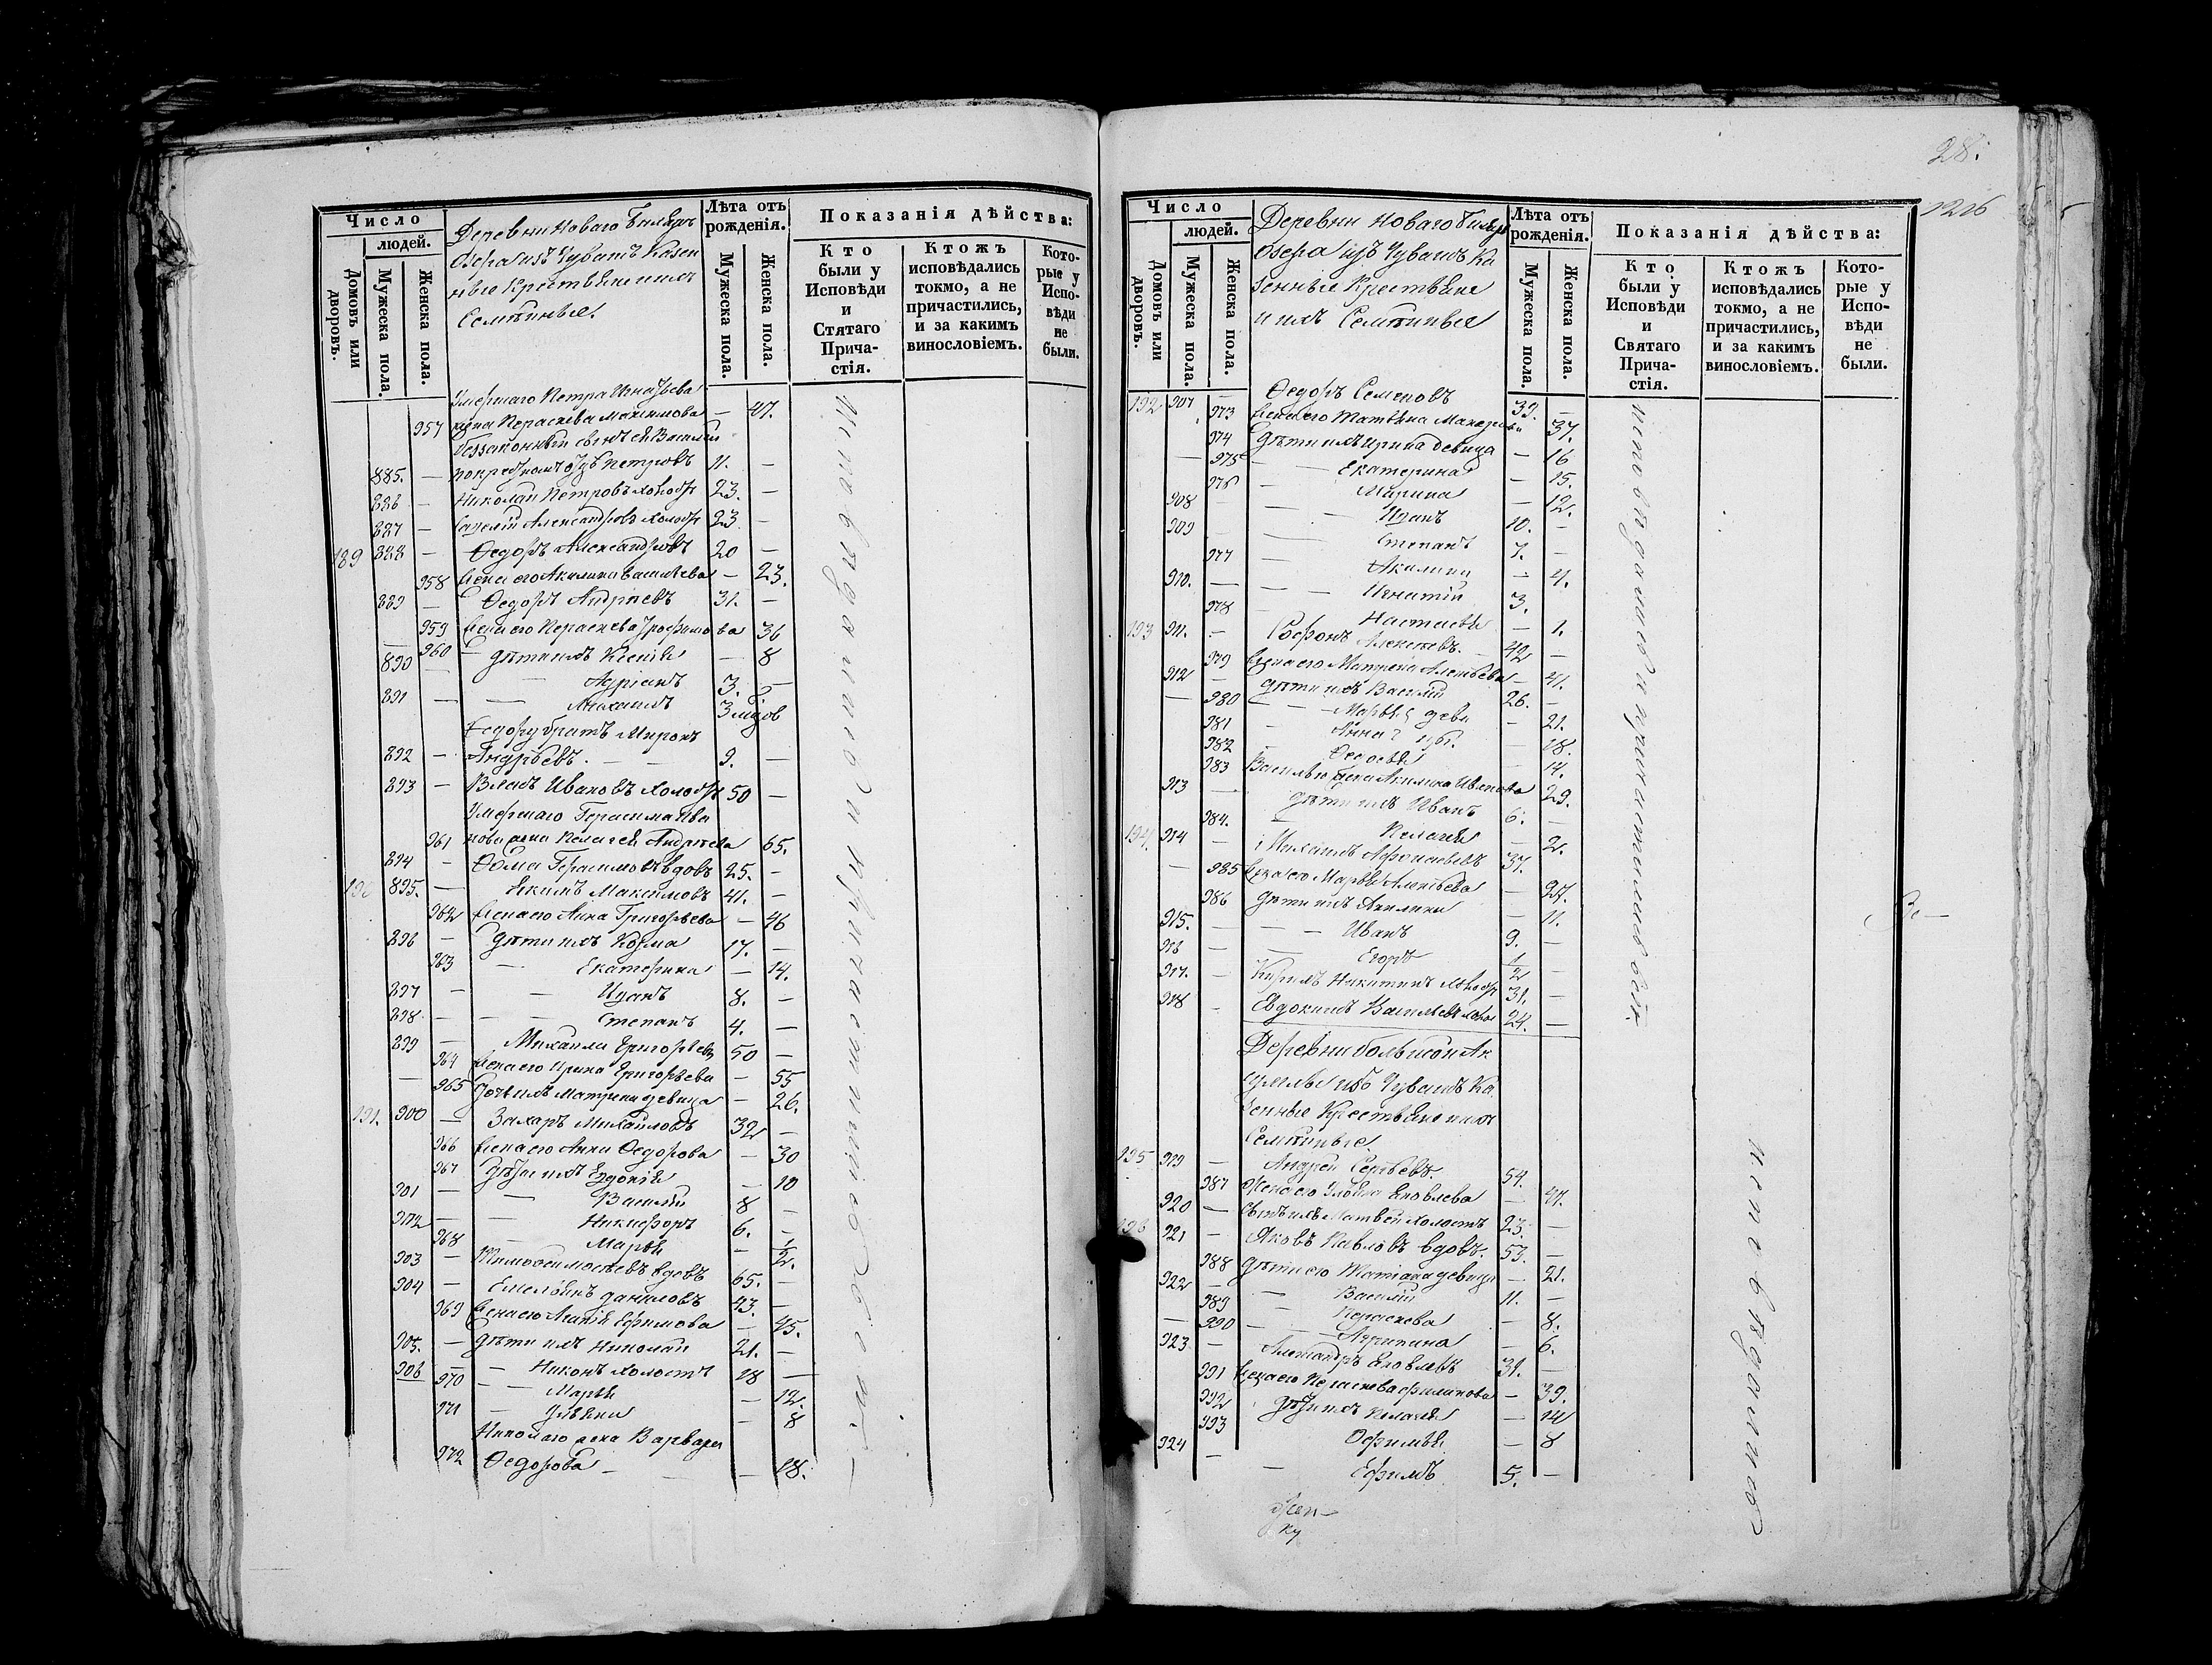 Число
людей.
Домовъ или дворовъ.
Мужеска пола.
Женска пола.
Деревни Новаго
Озера изъ Чувашъ Казен
ные Крестьяне и ихъ
Семѣйные.
Лѣта отъ рожденія.
Мужеска пола.
Женска пола.
Показанія дѣйства:
Кто были у Исповѣди и Стятаго Прича-стія.
Ктожъ исповѣдались токмо, а не причастились, и за какимъ винословіемъ.
Кото-рые у Испо-вѣди не были.
Умершаго Петра Игнатьева
957 жена Параскева Максимова — 47.
Беззаконный сынъ ея Василей
885. — Петровъ 11. —
886 — Николай Петровъ холост 23. —
887 — Савелій Александровъ холост 23. —
189 888 — Ѳедоръ Александровъ 20 —
958 Жена его Акилина Васильева — 23.
889 — Ѳедоръ Андреевъ 31. —
959 Жена его Параскева Трофимова 36
960 дѣти ихъ Ксенія — 8
890 — Адріанъ 3. —
891 — Михаилъ
Ѳедору братъ Миронъ
892 — Андреевъ. 9. —
893 — Власъ Ивановъ холост 50 —
Умершаго Герасима Ива
961 нова жена Пелагея Андреева 65.
894 — Ѳома Герасимовъ вдовъ 25. —
190 895. — Екимъ Максимовъ 41. —
962 Жена его Анна Григорьева — 46
896 — Дѣти ихъ Козма 17. —
963 — Екатерина — 14.
897 — Иванъ 8. —
898 — Степанъ 4. —
899 — Михаила Григорьевъ 50 —
964 Жена его Ирина Григорьева — 55
965 Дочь ихъ Матрена девица — 26.
191. 900 — Захаръ Михайловъ 32 —
966 Жена его Анна Ѳедорова — 30
967 Дѣти ихъ Евдокія — 10
901 — Василій 8 —
902 — Никифоръ 6. —
968 — Марья — 1/2.
903 — Тимофей вдовъ 65. —
904 — Емельянъ Даниловъ 43. —
969 Жена его Ефимова — 45.
905. — Дѣти ихъ Николай 21. —
906 — Никонъ холостъ 18 —
970 — Марья — 12.
971 — Ульяна — 8
Николаю жена Варвара
972 Ѳедорова — 18.
исповѣдались и причастились всѣ
28.
1216
Число
людей.
Домовъ или дворовъ.
Мужеска пола.
Женска пола.
Деревни Новаго
Озера изъ Чувашъ Ка
зенные Крестьяне
и ихъ Семѣйные
Лѣта отъ рожденія.
Мужеска пола.
Женска пола.
Показанія дѣйства:
Кто были у Исповѣди и Святаго Прича-стія.
Ктожъ исповѣдались токмо, а не причастились, и за какимъ винословіемъ.
Кото-рые у Испо-вѣди не были.
192 907 — Ѳедоръ Семеновъ 39. —
973 Жена его Татьяна Макарова 37.
974 Дѣти ихъ Ирина девица — 16
975 — Екатерина — 15.
976 — Марина — 12.
908 — Иванъ 10. —
909 — Степанъ 7. —
977 — Акилина — 4.
910. — Игнатій 3.
978 — Настасья — 1.
193 911. — Софонъ Алексеевъ. 42 —
979 Жена его Матрена Алексеева — 41.
912 — дѣти ихъ Василій 26. —
980 — Марья — 21.
981 — Анна — 18.
982 — Ѳедосья — 14.
983 Василью жена Акилина Иванова 29.
913 — дѣти ихъ Иванъ 6. —
984. — Пелагея — 2.
194 914 — Михаилъ Афонасьевъ 37.
985 Жена его Марья Алексеева — 37.
986 Дѣти ихъ Акилина — 11.
915. — Иванъ 9. —
916 — Егоръ 1/2 —
917. — Кирилъ Никитинъ холост 31. —
918 — Евдокимъ Васильевъ холос 24. —
Деревни большой Ак
изъ Чувашъ Ка
зенные Крестьяне и ихъ
Семѣйные.
195 919 — Андрей Сергѣевъ. 54.
987 Жена его Ульяна Яковлева — 47.
920 — Сынъ ихъ Матвей холостъ 23. —
196 921 — Яковъ Павловъ вдовъ. 53. —
988 Дѣти его Татіана девица — 21.
922 — Василій 11. —
989 — Параскева — 8.
990 — Агрипина — 6.
923 — Александръ Яковлевъ 31. —
991 Жена его Параскева Филипова — 39.
992 Дѣти ихъ Пелагея — 14
993 Ѳефимья — 8
924 — Ефимъ 5. —
исповѣдались и причастились всѣ.
исповѣдались